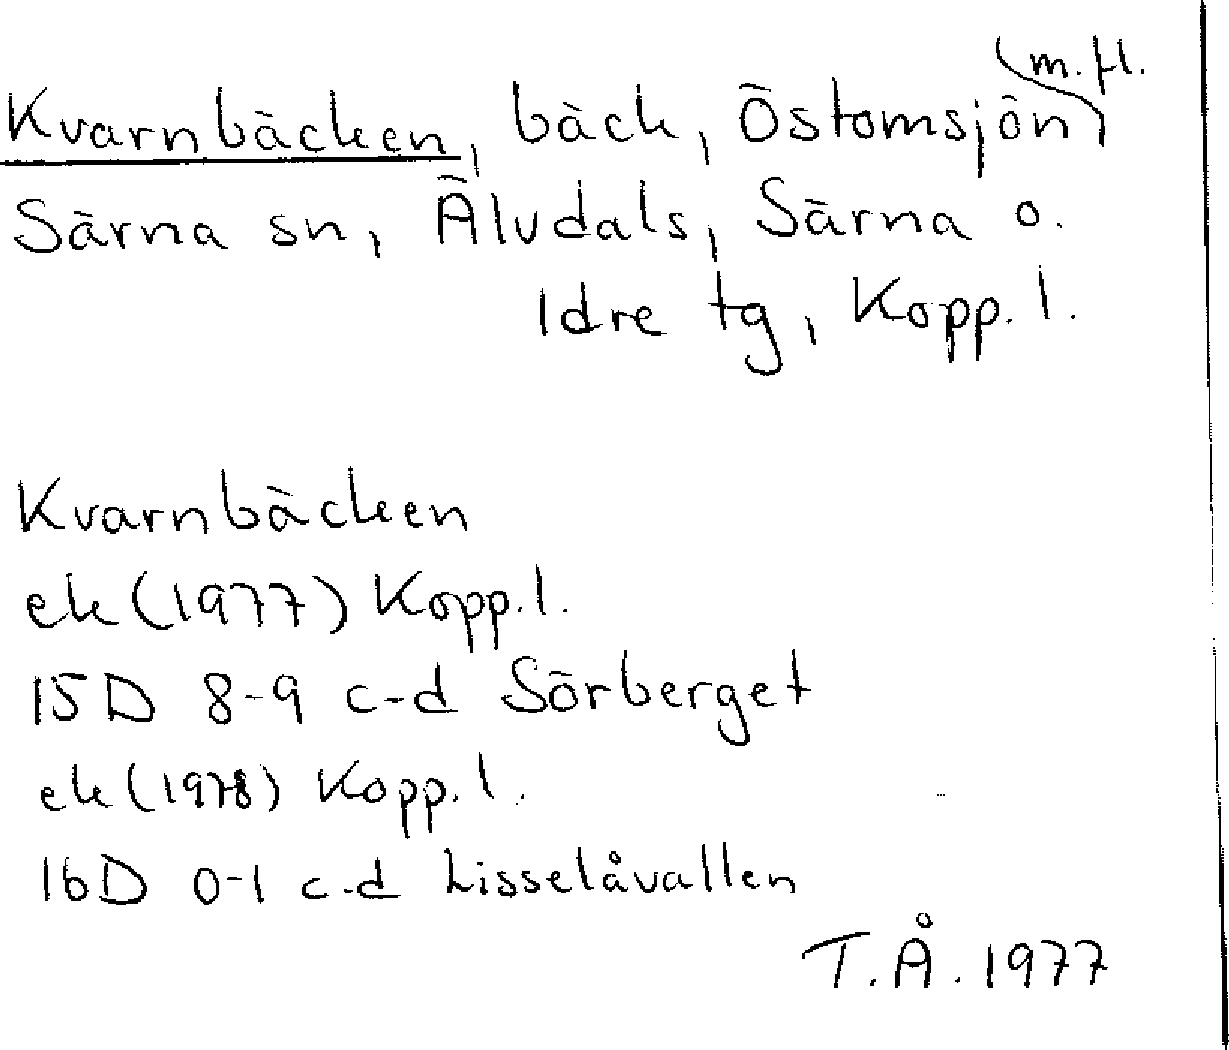 Kvarnbäcken, bäck, Östomsjön m.fl.
Särna sn, Älvdals, Särna o.
Idre tg, Kopp. l.
Kvarnbäcken
ek (1977) Kopp. l.
15D 8-9 c-d Sörberget
ek (1978) Kopp. l.
16D 0-1 c-d Lisselåvallen
T.Å. 1977